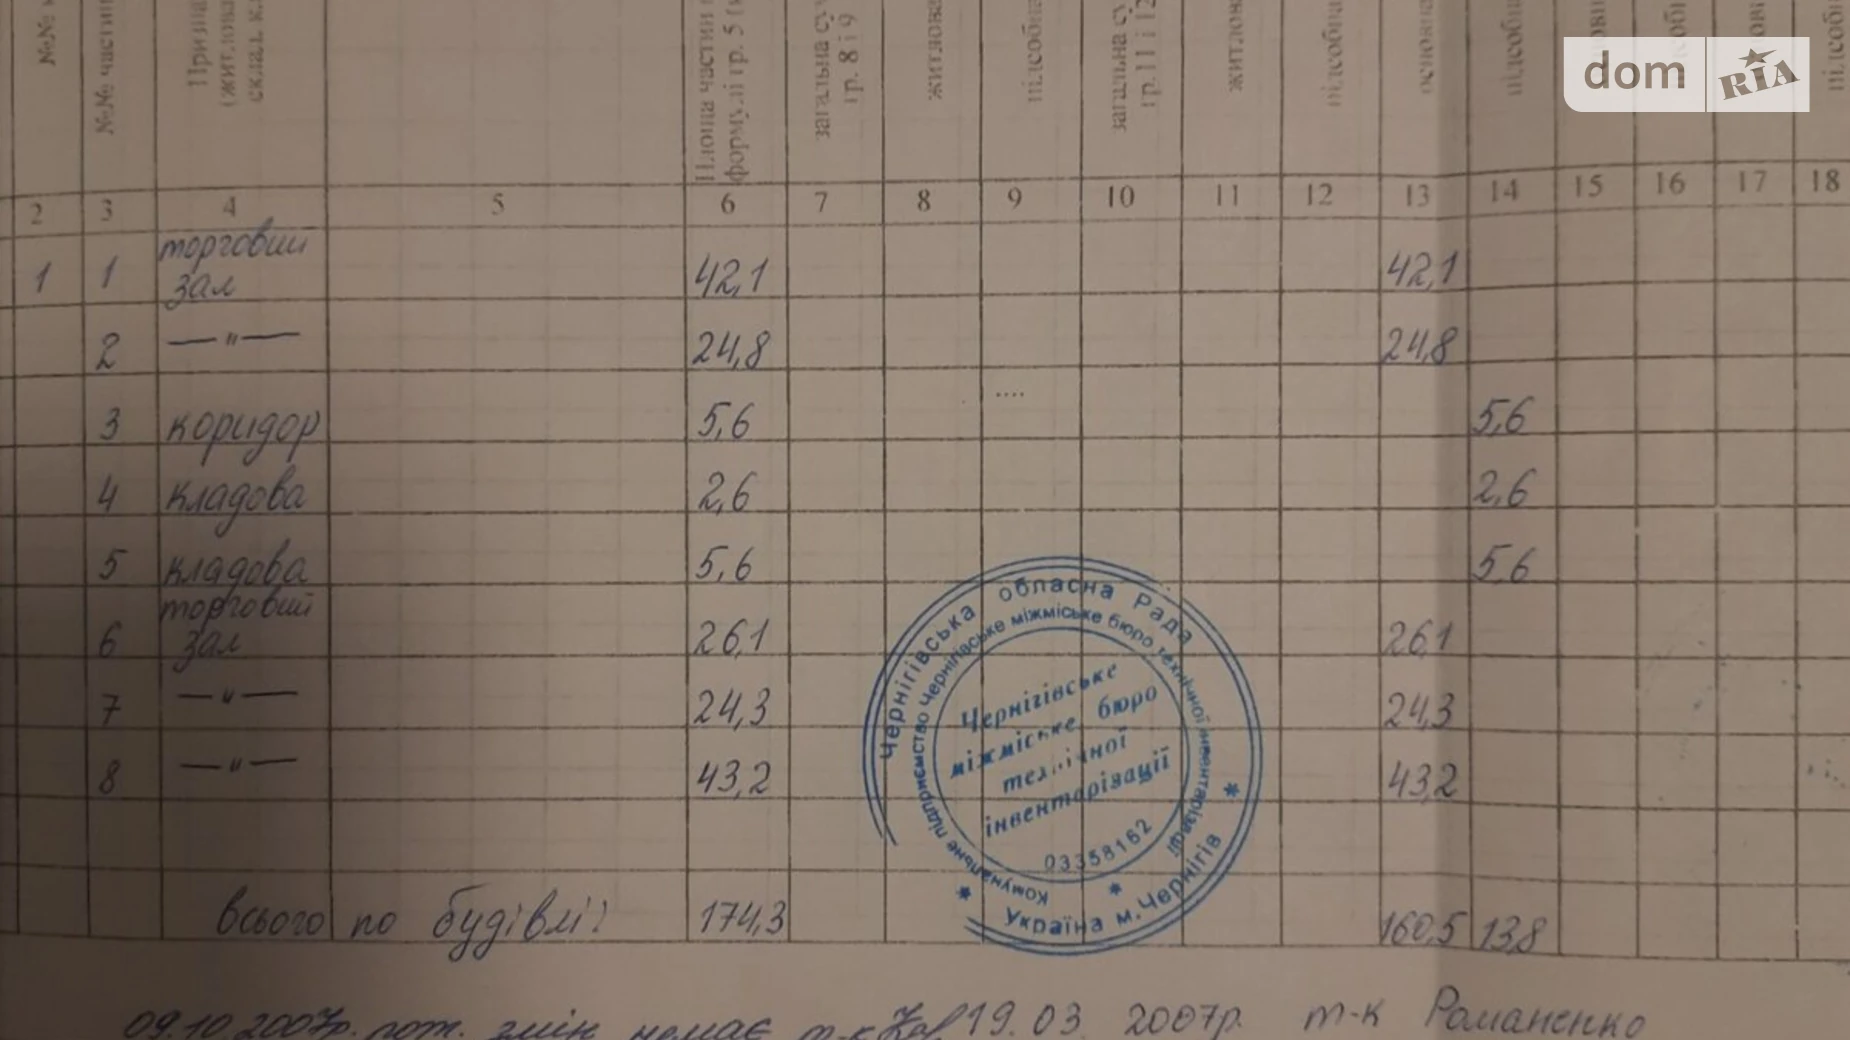 dom RIA
№№
№№ частин
(житлова
Площа частин
формулі гр. 5
загальна
гр. 8 і 9
житлова
підсобна
загальна
гр. 11 і 12
житлова
підсобна
основна
підсобна
2 3 4 5 6 7 8 9 10 11 12 13 14 15 16 17 18
торговий
1 1 зал 42,1 42,1
2 — " — 24,8 24,8
3 коридор 5,6 5,6
4 кладова 2,6 2,6
5 кладова 5,6 5,6
торговий
6 зал 26,1 26,1
7 — " — 24,3 24,3
8 — " — 43,2 43,2
всього по будівлі: 174,3 160,5 13,8
Чернігівська обласна Рада
Комунальне підприємство Чернігівське міжміське бюро технічної інвентарізації
Чернігівське
міжміське бюро
технічної
інвентарізації
03358162
* Україна м.Чернігів *
09.10.2007р. пот. змін немає т-к 19.03 2007р. т-к Романенко